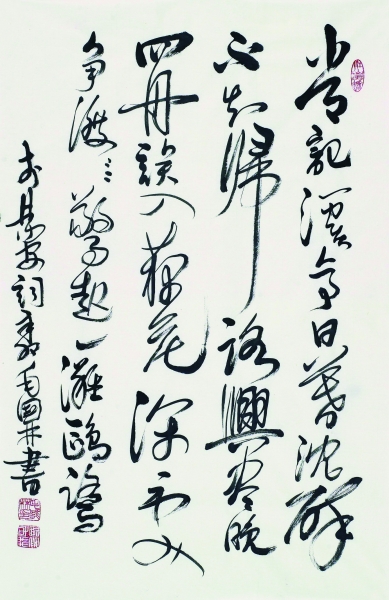 常記溪亭日暮沈醉
不知歸路興盡晚
回舟誤入藕花深處
争渡〻〻驚起一灘鷗鷺
李易安詞 國井書